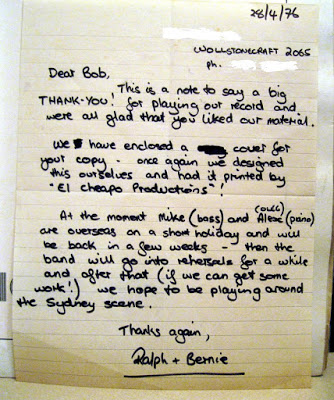 28/4/76
WOLLSTONECRAFT 2065
ph.
Dear Bob,
This is a note to say a big
THANK-YOU! for playing our record and
were all glad that you liked our material.
We have enclosed a cover for
your copy - once again we designed
this ourselves and had it printed by
"El cheapo Productions"!
At the moment Mike (bass) and Alex (piano)
are overseas on a short holiday and will
be back in a few weeks - then the
band will go into rehersals for a while
and after that (if we can get some
work!) we hope to be playing around
the Sydney scene.
Thanks again,
Ralph + Bernie